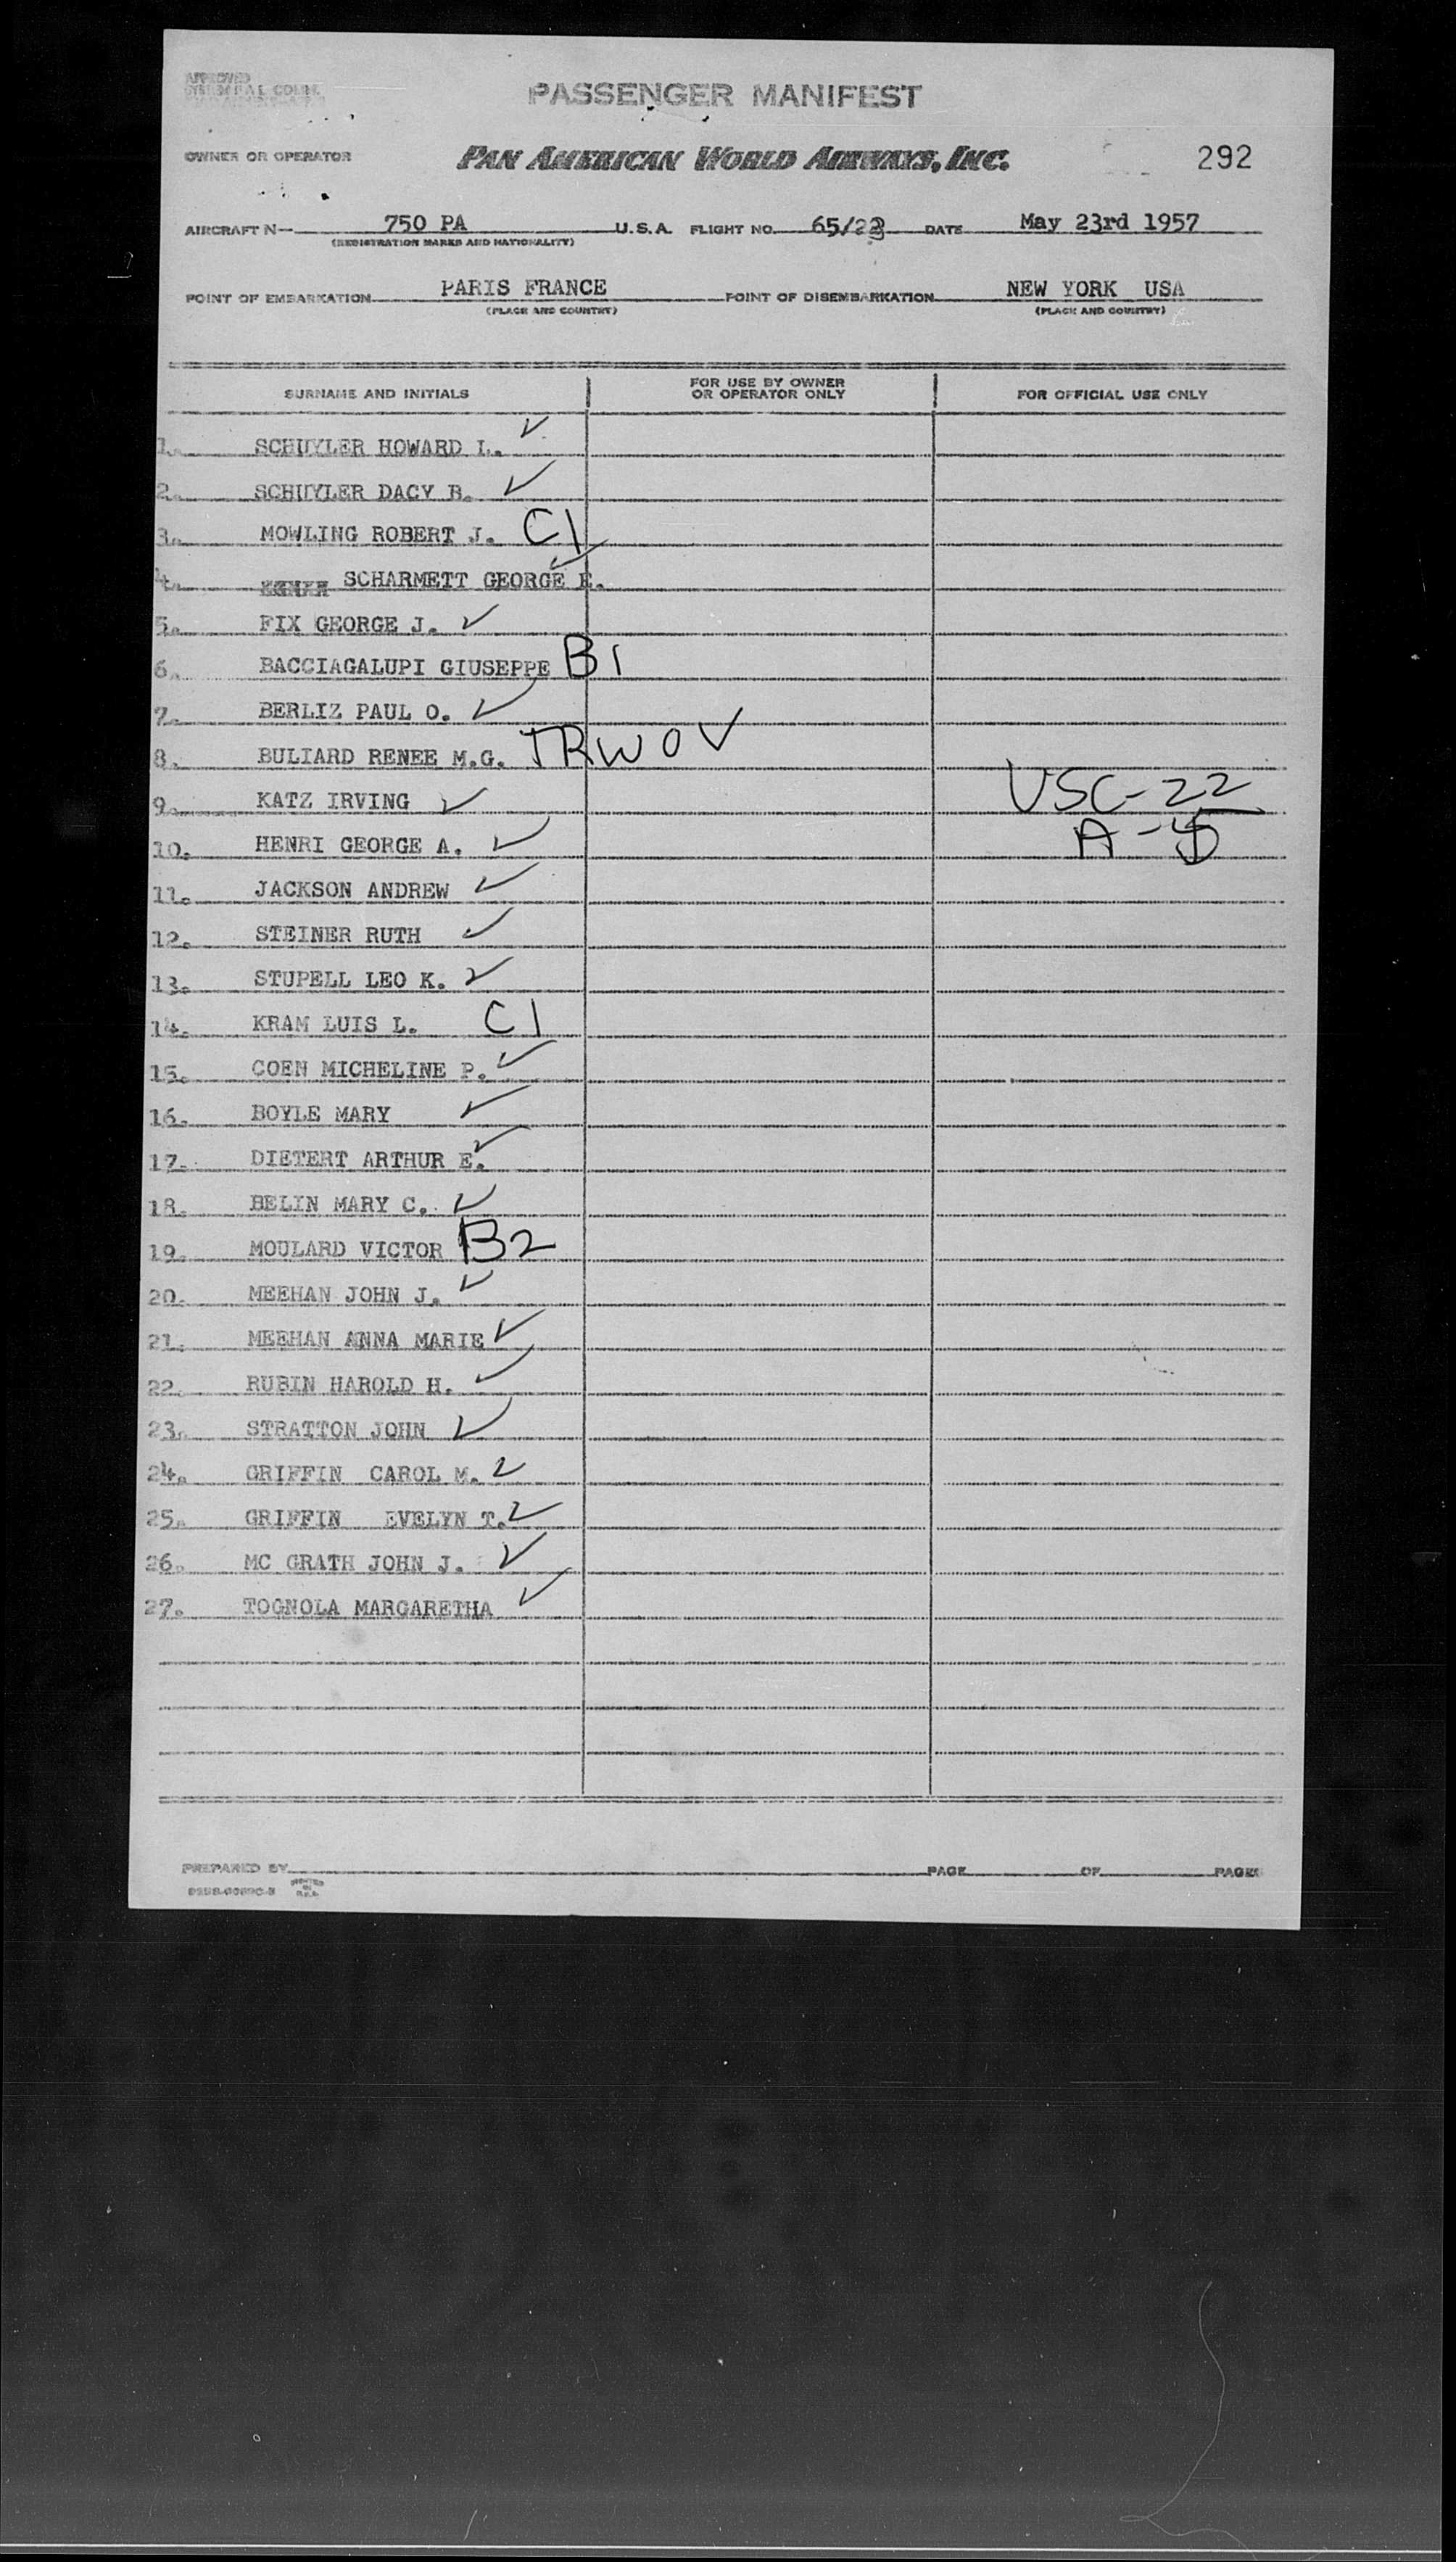 APPROVED
PASSENGER MANIFEST
OWNER OR OPERATOR PAN AMERICAN WORLD AIRWAYS, INC. 292
AIRCRAFT N— 750 PA U.S.A. FLIGHT NO. 65/23 DATE May 23rd 1957
(REGISTRATION MARKS AND NATIONALITY)
POINT OF EMBARKATION PARIS FRANCE POINT OF DISEMBARKATION NEW YORK USA
(PLACE AND COUNTRY) (PLACE AND COUNTRY)
SURNAME AND INITIALS FOR USE BY OWNER OR OPERATOR ONLY FOR OFFICIAL USE ONLY
1. SCHUYLER HOWARD L. ✓
2. SCHUYLER DACY B. ✓
3. MOWLING ROBERT J. C1
4. SCHARMETT GEORGE E. ✓
5. FIX GEORGE J. ✓
6. BACCIAGALUPI GIUSEPPE B1
7. BERLIZ PAUL O. ✓
8. BULIARD RENEE M.G. TRWOV
9. KATZ IRVING ✓ USC-22
10. HENRI GEORGE A. ✓ A-5
11. JACKSON ANDREW ✓
12. STEINER RUTH ✓
13. STUPELL LEO K. ✓
14. KRAM LUIS L. C1
15. COEN MICHELINE P. ✓
16. BOYLE MARY ✓
17. DIETERT ARTHUR E. ✓
18. BELIN MARY C. ✓
19. MOULARD VICTOR B2
20. MEEHAN JOHN J. ✓
21. MEEHAN ANNA MARIE ✓
22. RUBIN HAROLD H. ✓
23. STRATTON JOHN ✓
24. GRIFFIN CAROL M. ✓
25. GRIFFIN EVELYN T. ✓
26. MC GRATH JOHN J. ✓
27. TOGNOLA MARGARETHA ✓
PREPARED BY PAGE OF PAGES
PRINTED IN U.S.A.